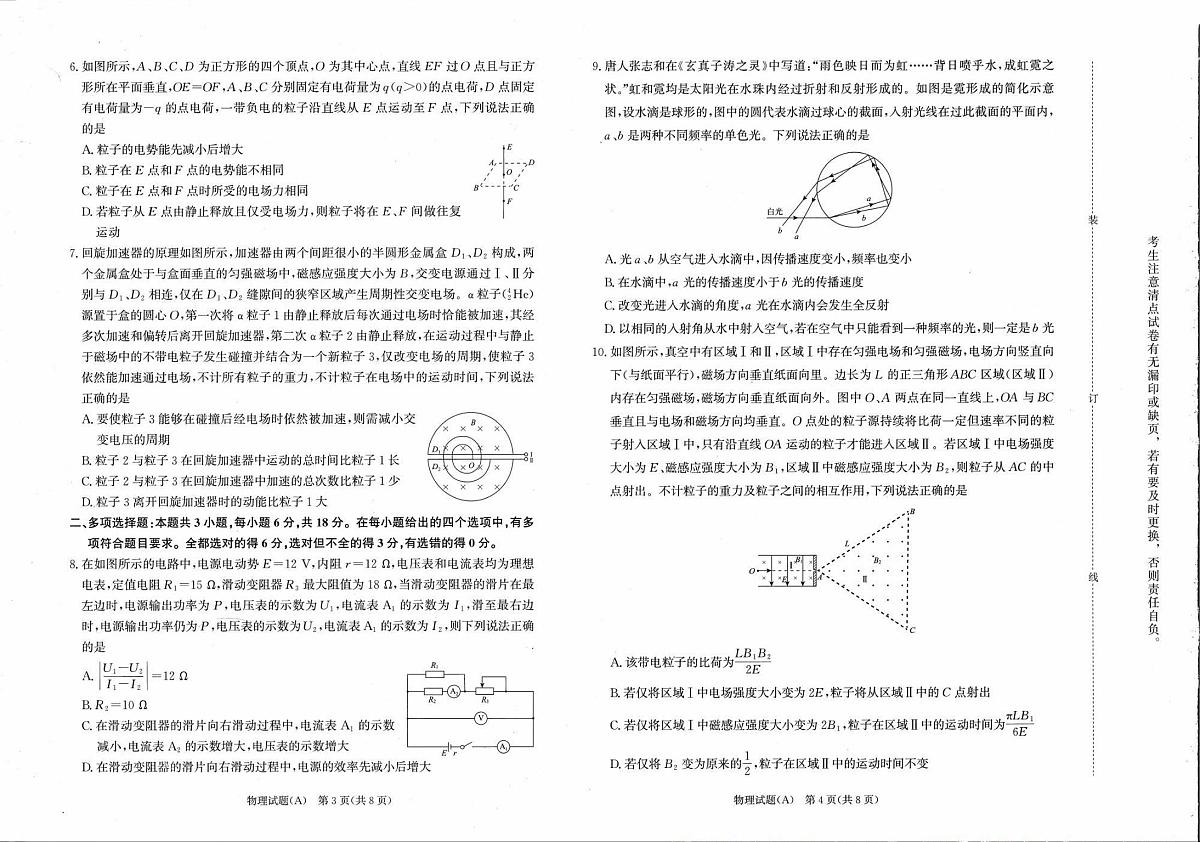 6. 如图所示,A、B、C、D 为正方形的四个顶点,O 为其中心点,直线 EF 过O 点且与正方
形所在平面垂直,OE=OF,A、B、C 分别固定有电荷量为q(q>0)的点电荷,D 点固定
有电荷量为-q 的点电荷,一带负电的粒子沿直线从 E 点运动至 F 点,下列说法正确
的是
A. 粒子的电势能先减小后增大
B. 粒子在 E 点和 F 点的电势能不相同
C. 粒子在 E 点和 F 点时所受的电场力相同
D. 若粒子从 E 点由静止释放且仅受电场力,则粒子将在 E、F 间做往复
运动
E
A
D
O
B
C
F
7. 回旋加速器的原理如图所示,加速器由两个间距很小的半圆形金属盒 D₁、D₂ 构成,两
个金属盒处于与盒面垂直的匀强磁场中,磁感应强度大小为 B,交变电源通过Ⅰ、Ⅱ分
别与 D₁、D₂ 相连,仅在 D₁、D₂ 缝隙间的狭窄区域产生周期性交变电场。α粒子(⁴₂He)
源置于盒的圆心 O,第一次将 α 粒子 1 由静止释放后每次通过电场时恰能被加速,其经
多次加速和偏转后离开回旋加速器,第二次 α 粒子 2 由静止释放,在运动过程中与静止
于磁场中的不带电粒子发生碰撞并结合为一个新粒子 3,仅改变电场的周期,使粒子 3
依然能加速通过电场,不计所有粒子的重力,不计粒子在电场中的运动时间,下列说法
正确的是
A. 要使粒子 3 能够在碰撞后经电场时依然被加速,则需减小交
变电压的周期
B. 粒子 2 与粒子 3 在回旋加速器中运动的总时间比粒子 1 长
C. 粒子 2 与粒子 3 在回旋加速器中加速的总次数比粒子 1 少
D. 粒子 3 离开回旋加速器时的动能比粒子 1 大
B
D₁
D₂
O
二、多项选择题:本题共 3 小题,每小题 6 分,共 18 分。在每小题给出的四个选项中,有多
项符合题目要求。全部选对的得 6 分,选对但不全的得 3 分,有选错的得 0 分。
8. 在如图所示的电路中,电源电动势 E=12 V,内阻 r=12 Ω,电压表和电流表均为理想
电表,定值电阻 R₁=15 Ω,滑动变阻器 R₃ 最大阻值为 18 Ω,当滑动变阻器的滑片在最
左边时,电源输出功率为 P,电压表的示数为U₁,电流表 A₁ 的示数为 I₁,滑至最右边
时,电源输出功率仍为 P,电压表的示数为U₂,电流表 A₁ 的示数为 I₂,则下列说法正确
的是
A. |(U₁-U₂)/(I₁-I₂)|=12 Ω
B. R₂=10 Ω
C. 在滑动变阻器的滑片向右滑动过程中,电流表 A₁ 的示数
减小,电流表 A₂ 的示数增大,电压表的示数增大
D. 在滑动变阻器的滑片向右滑动过程中,电源的效率先减小后增大
R₁
R₂
A₂
R₃
V
E r
A₁
物理试题(A) 第 3 页(共 8 页)
9. 唐人张志和在《玄真子涛之灵》中写道:“雨色映日而为虹……背日喷乎水,成虹霓之
状。”虹和霓均是太阳光在水珠内经过折射和反射形成的。如图是霓形成的简化示意
图,设水滴是球形的,图中的圆代表水滴过球心的截面,入射光线在过此截面的平面内,
a、b 是两种不同频率的单色光。下列说法正确的是
白光
a
b
b
a
A. 光 a、b 从空气进入水滴中,因传播速度变小,频率也变小
B. 在水滴中,a 光的传播速度小于 b 光的传播速度
C. 改变光进入水滴的角度,a 光在水滴内会发生全反射
D. 以相同的入射角从水中射入空气,若在空气中只能看到一种频率的光,则一定是 b 光
10. 如图所示,真空中有区域Ⅰ和Ⅱ,区域Ⅰ中存在匀强电场和匀强磁场,电场方向竖直向
下(与纸面平行),磁场方向垂直纸面向里。边长为 L 的正三角形 ABC 区域(区域Ⅱ)
内存在匀强磁场,磁场方向垂直纸面向外。图中 O、A 两点在同一直线上,OA 与 BC
垂直且与电场和磁场方向均垂直。O 点处的粒子源持续将比荷一定但速率不同的粒
子射入区域Ⅰ中,只有沿直线 OA 运动的粒子才能进入区域Ⅱ。若区域Ⅰ中电场强度
大小为 E、磁感应强度大小为 B₁,区域Ⅱ中磁感应强度大小为 B₂,则粒子从 AC 的中
点射出。不计粒子的重力及粒子之间的相互作用,下列说法正确的是
B
L
B₂
Ⅰ
O
A
Ⅱ
C
A. 该带电粒子的比荷为LB₁B₂/2E
B. 若仅将区域Ⅰ中电场强度大小变为 2E,粒子将从区域Ⅱ中的 C 点射出
C. 若仅将区域Ⅰ中磁感应强度大小变为 2B₁,粒子在区域Ⅱ中的运动时间为πLB₁/6E
D. 若仅将 B₂ 变为原来的1/2,粒子在区域Ⅱ中的运动时间不变
物理试题(A) 第 4 页(共 8 页)
装
订
线
考生注意清点试卷有无漏印或缺页,若有要及时更换,否则责任自负。